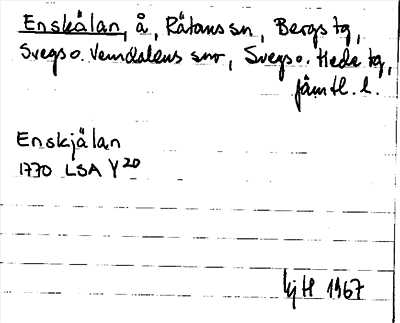 Enskälan, å, Rätans sn, Bergs tg,
Svegs o. Vemdalens snr, Svegs o. Hede tg,
Jämtl. l.
Enskjälan
1770 LSA Y20
HjH 1967